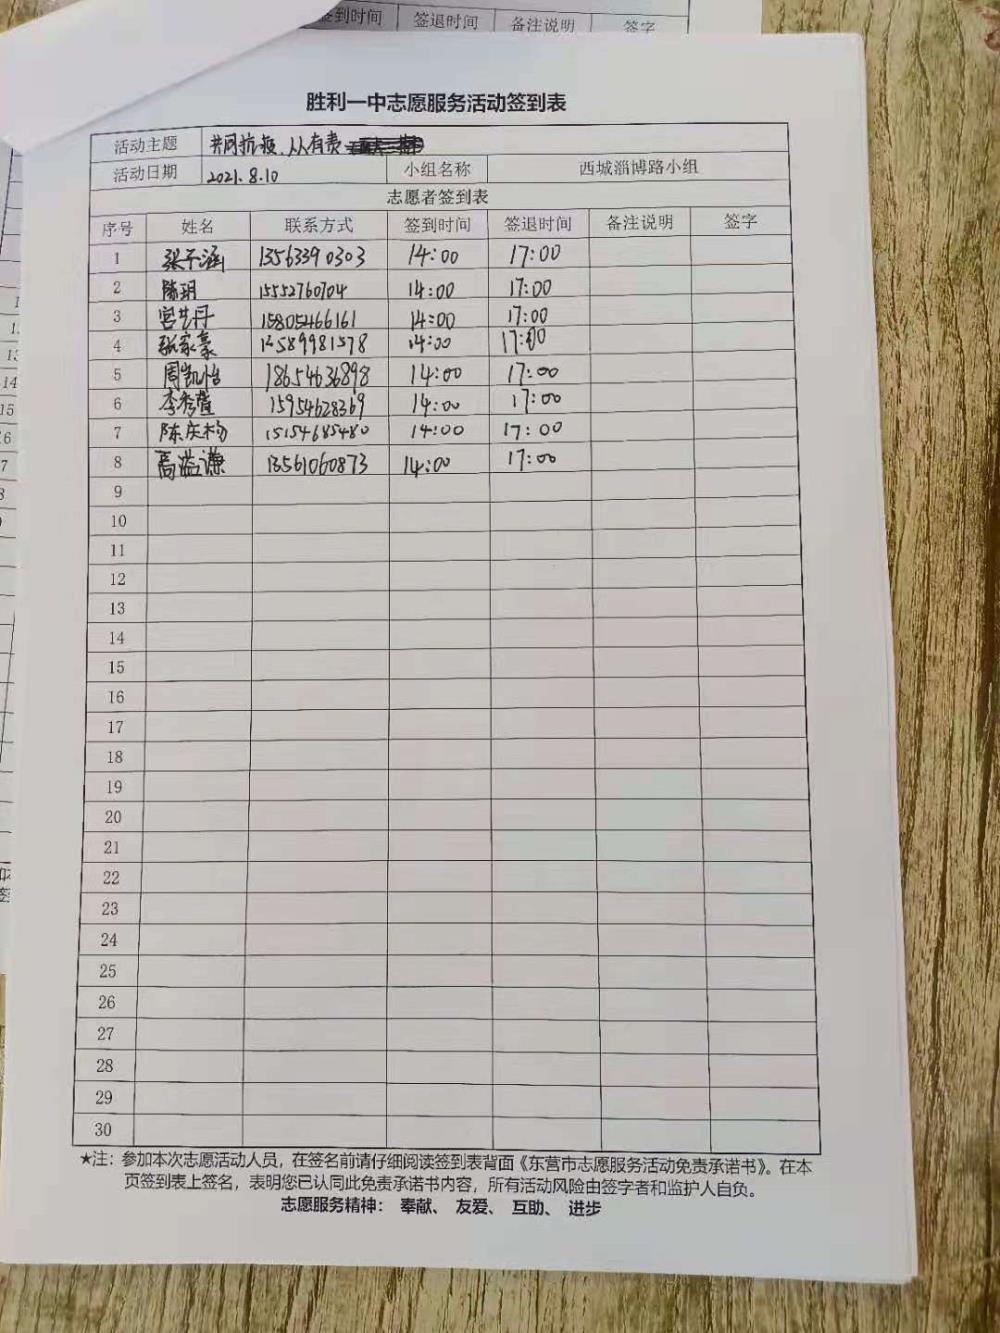 签到时间 签退时间 备注说明 签字
胜利一中志愿服务活动签到表
活动主题 共同抗疫,人人有责
活动日期 2021.8.10 小组名称 西城淄博路小组
志愿者签到表
序号 姓名 联系方式 签到时间 签退时间 备注说明 签字
1 张予涵 13563390303 14:00 17:00
2 陈玥 15552760704 14:00 17:00
3 宫艺丹 15805466161 14:00 17:00
4 张家豪 14:00 17:00
5 周凯怡 18654636898 14:00 17:00
6 李秀萱 15954628369 14:00 17:00
7 陈庆杨 15154685480 14:00 17:00
8 高益谦 13561060873 14:00 17:00
9
10
11
12
13
14
15
16
17
18
19
20
21
22
23
24
25
26
27
28
29
30
★注:参加本次志愿活动人员,在签名前请仔细阅读签到表背面《东营市志愿服务活动免责承诺书》。在本
页签到表上签名,表明您已认同此免责承诺书内容,所有活动风险由签字者和监护人自负。
志愿服务精神: 奉献、 友爱、 互助、 进步